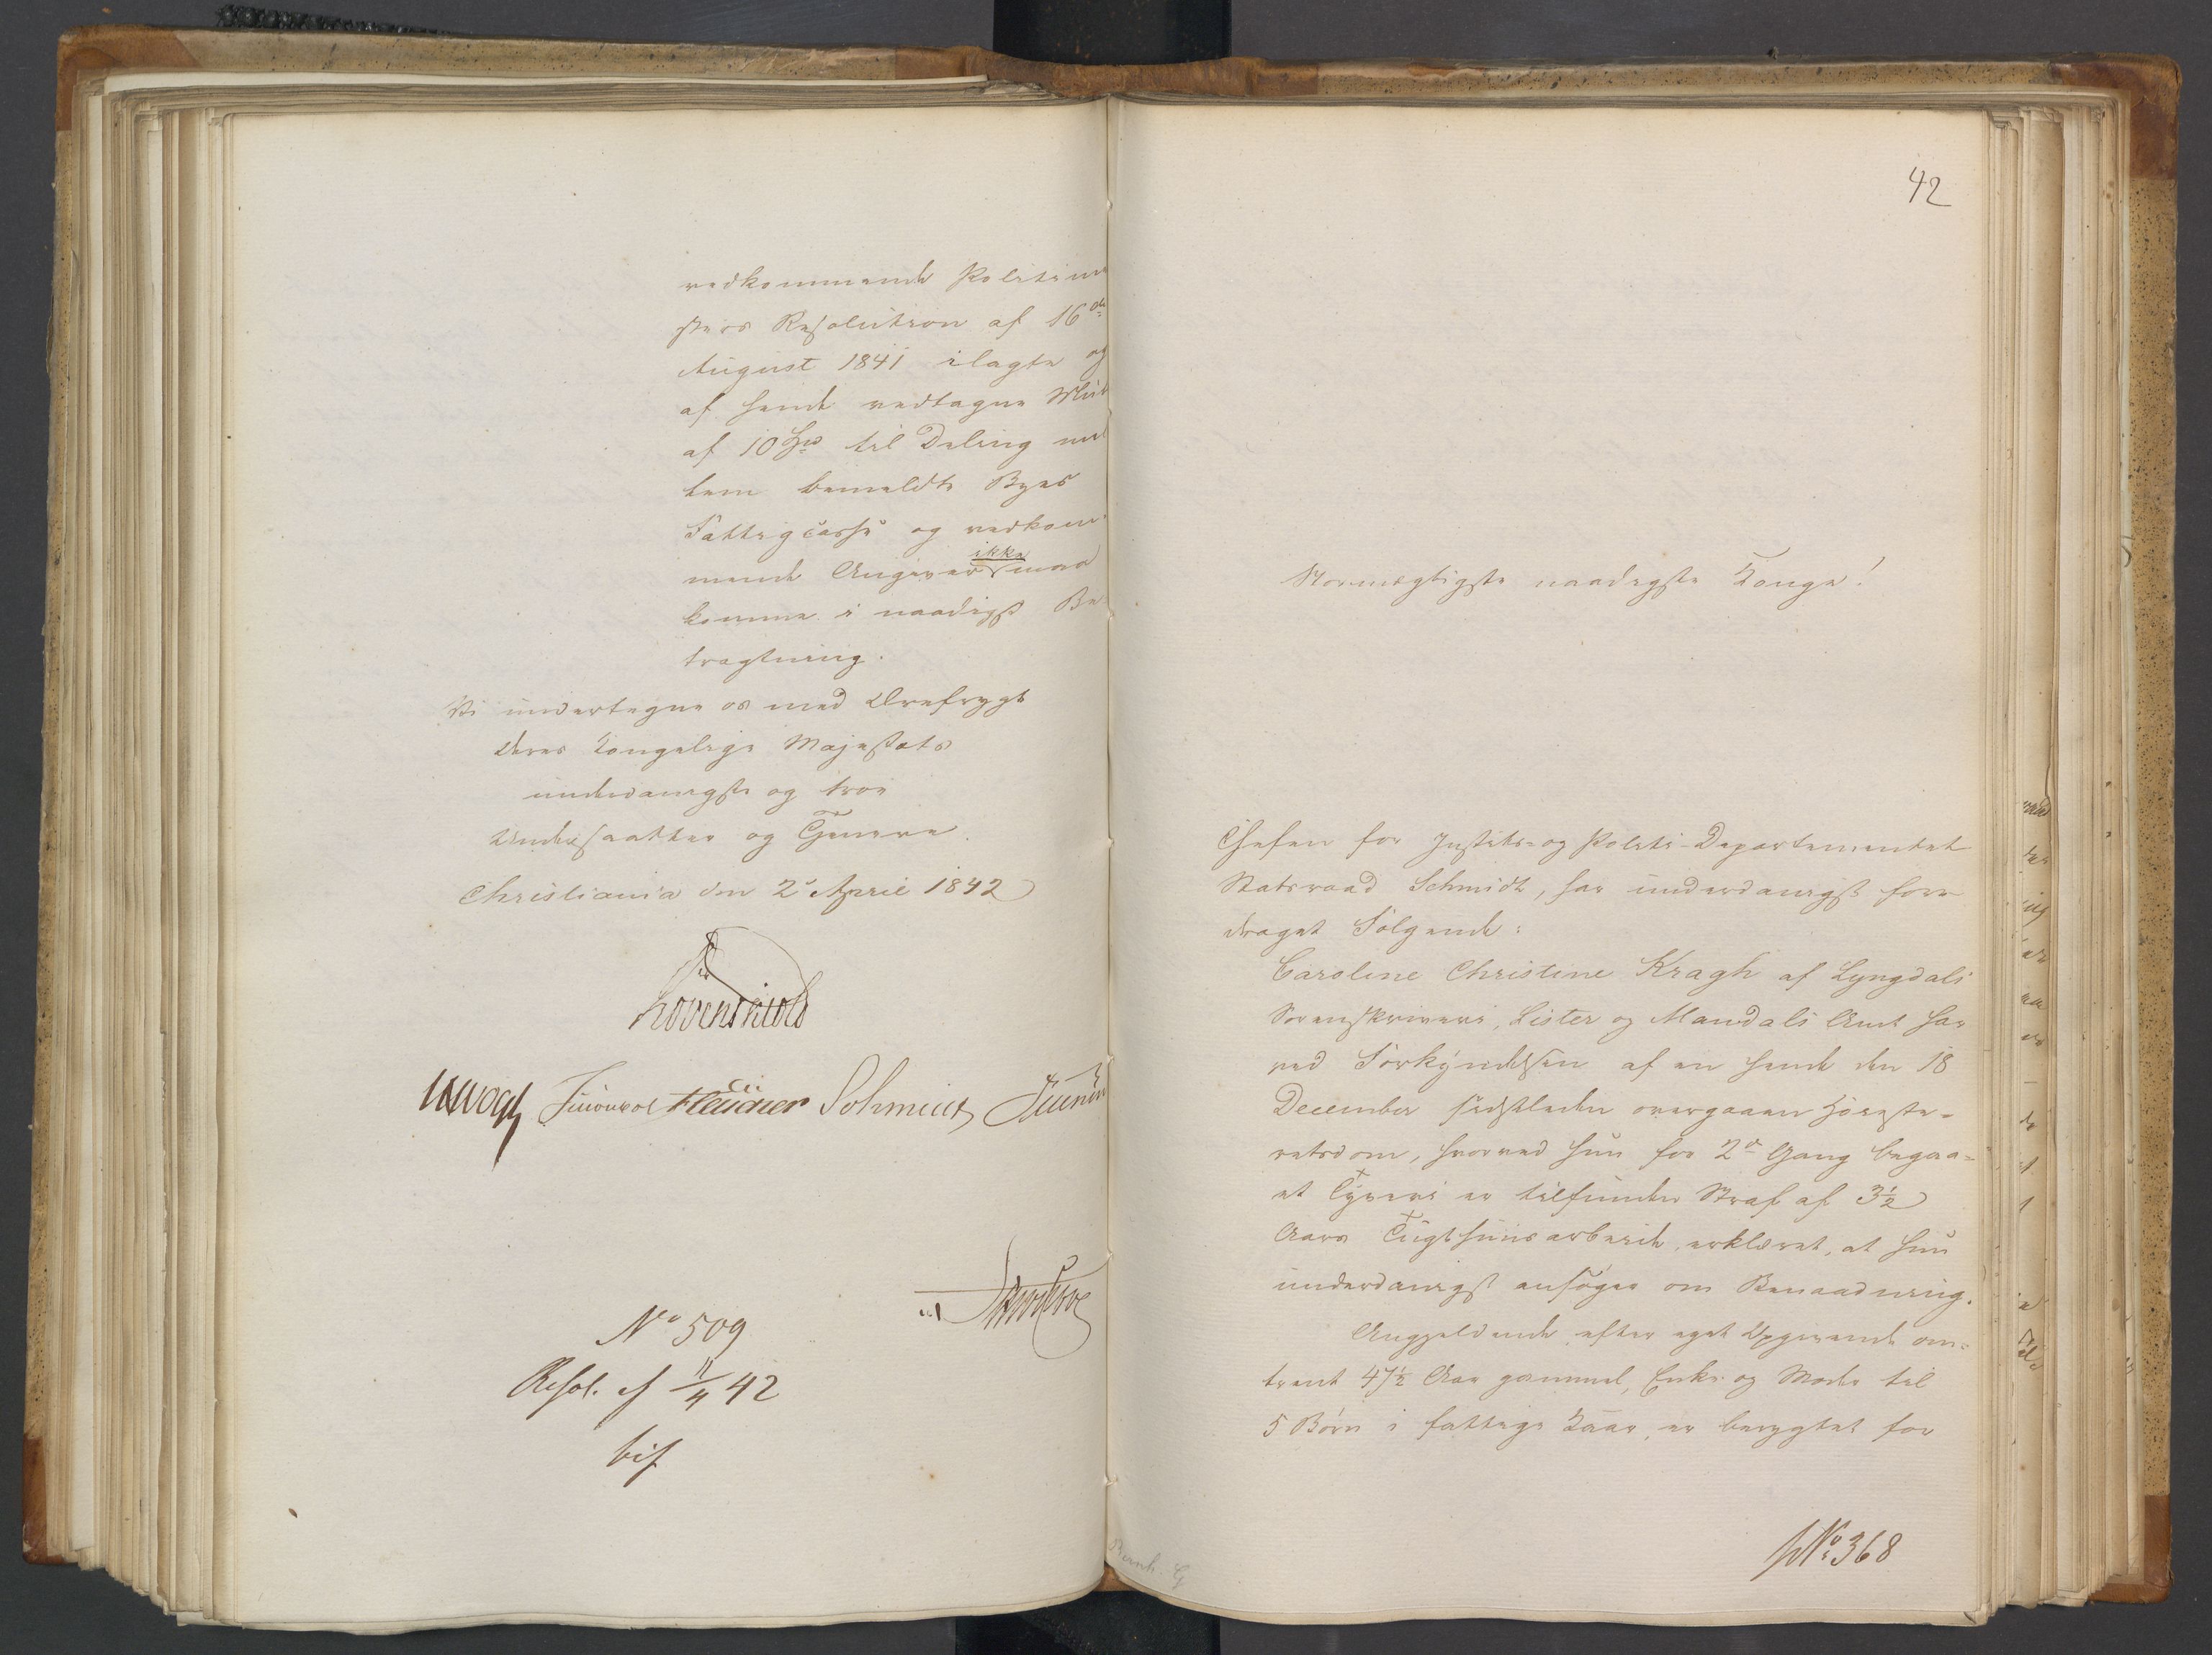 vedkommende Politime
sters Resolution af 16de
August 1841 ilagte og
af hende vedtagne Mulct
af 10 Spd til Deling mel
lem bemeldte Byes
Fattigcasse og vedkom
mende Angiver ikke maa
komme i naadigst Be
tragtning.
Vi undertegne os med Ærefrygt
Deres Kongelige Majestæts
underdanigste og troe
Undersaatter og Tjenere.
Christiania den 2den April 1842
Løvenskiold
Vogt Fleischer Schmidt
No 509
Resol. af 11/4 42
bif
42
Stormægtigste naadigste Konge!
Chefen for Justits- og Politi-Departementet
Statsraad Schmidt, har underdanigst fore
draget Følgende:
Caroline Christine Kragh af Lyngdals
Sorenskriveri, Lister og Mandals Amt har
ved Forkyndelsen af en hende den 18
December sidstleden overgaaen Høieste-
retsdom, hvorved hun for 2den Gang begaa-
et Tyveri er tilfunden Straf af 3½
Aars Tugthuusarbeide, erklæret, at hun
underdanigst ansøger om Benaadning.
Angjeldende, efter eget Opgivende om-
trent 47½ Aar gammel, Enke og Moder til
5 Børn i fattige Kaar, er berygtet for
No 368